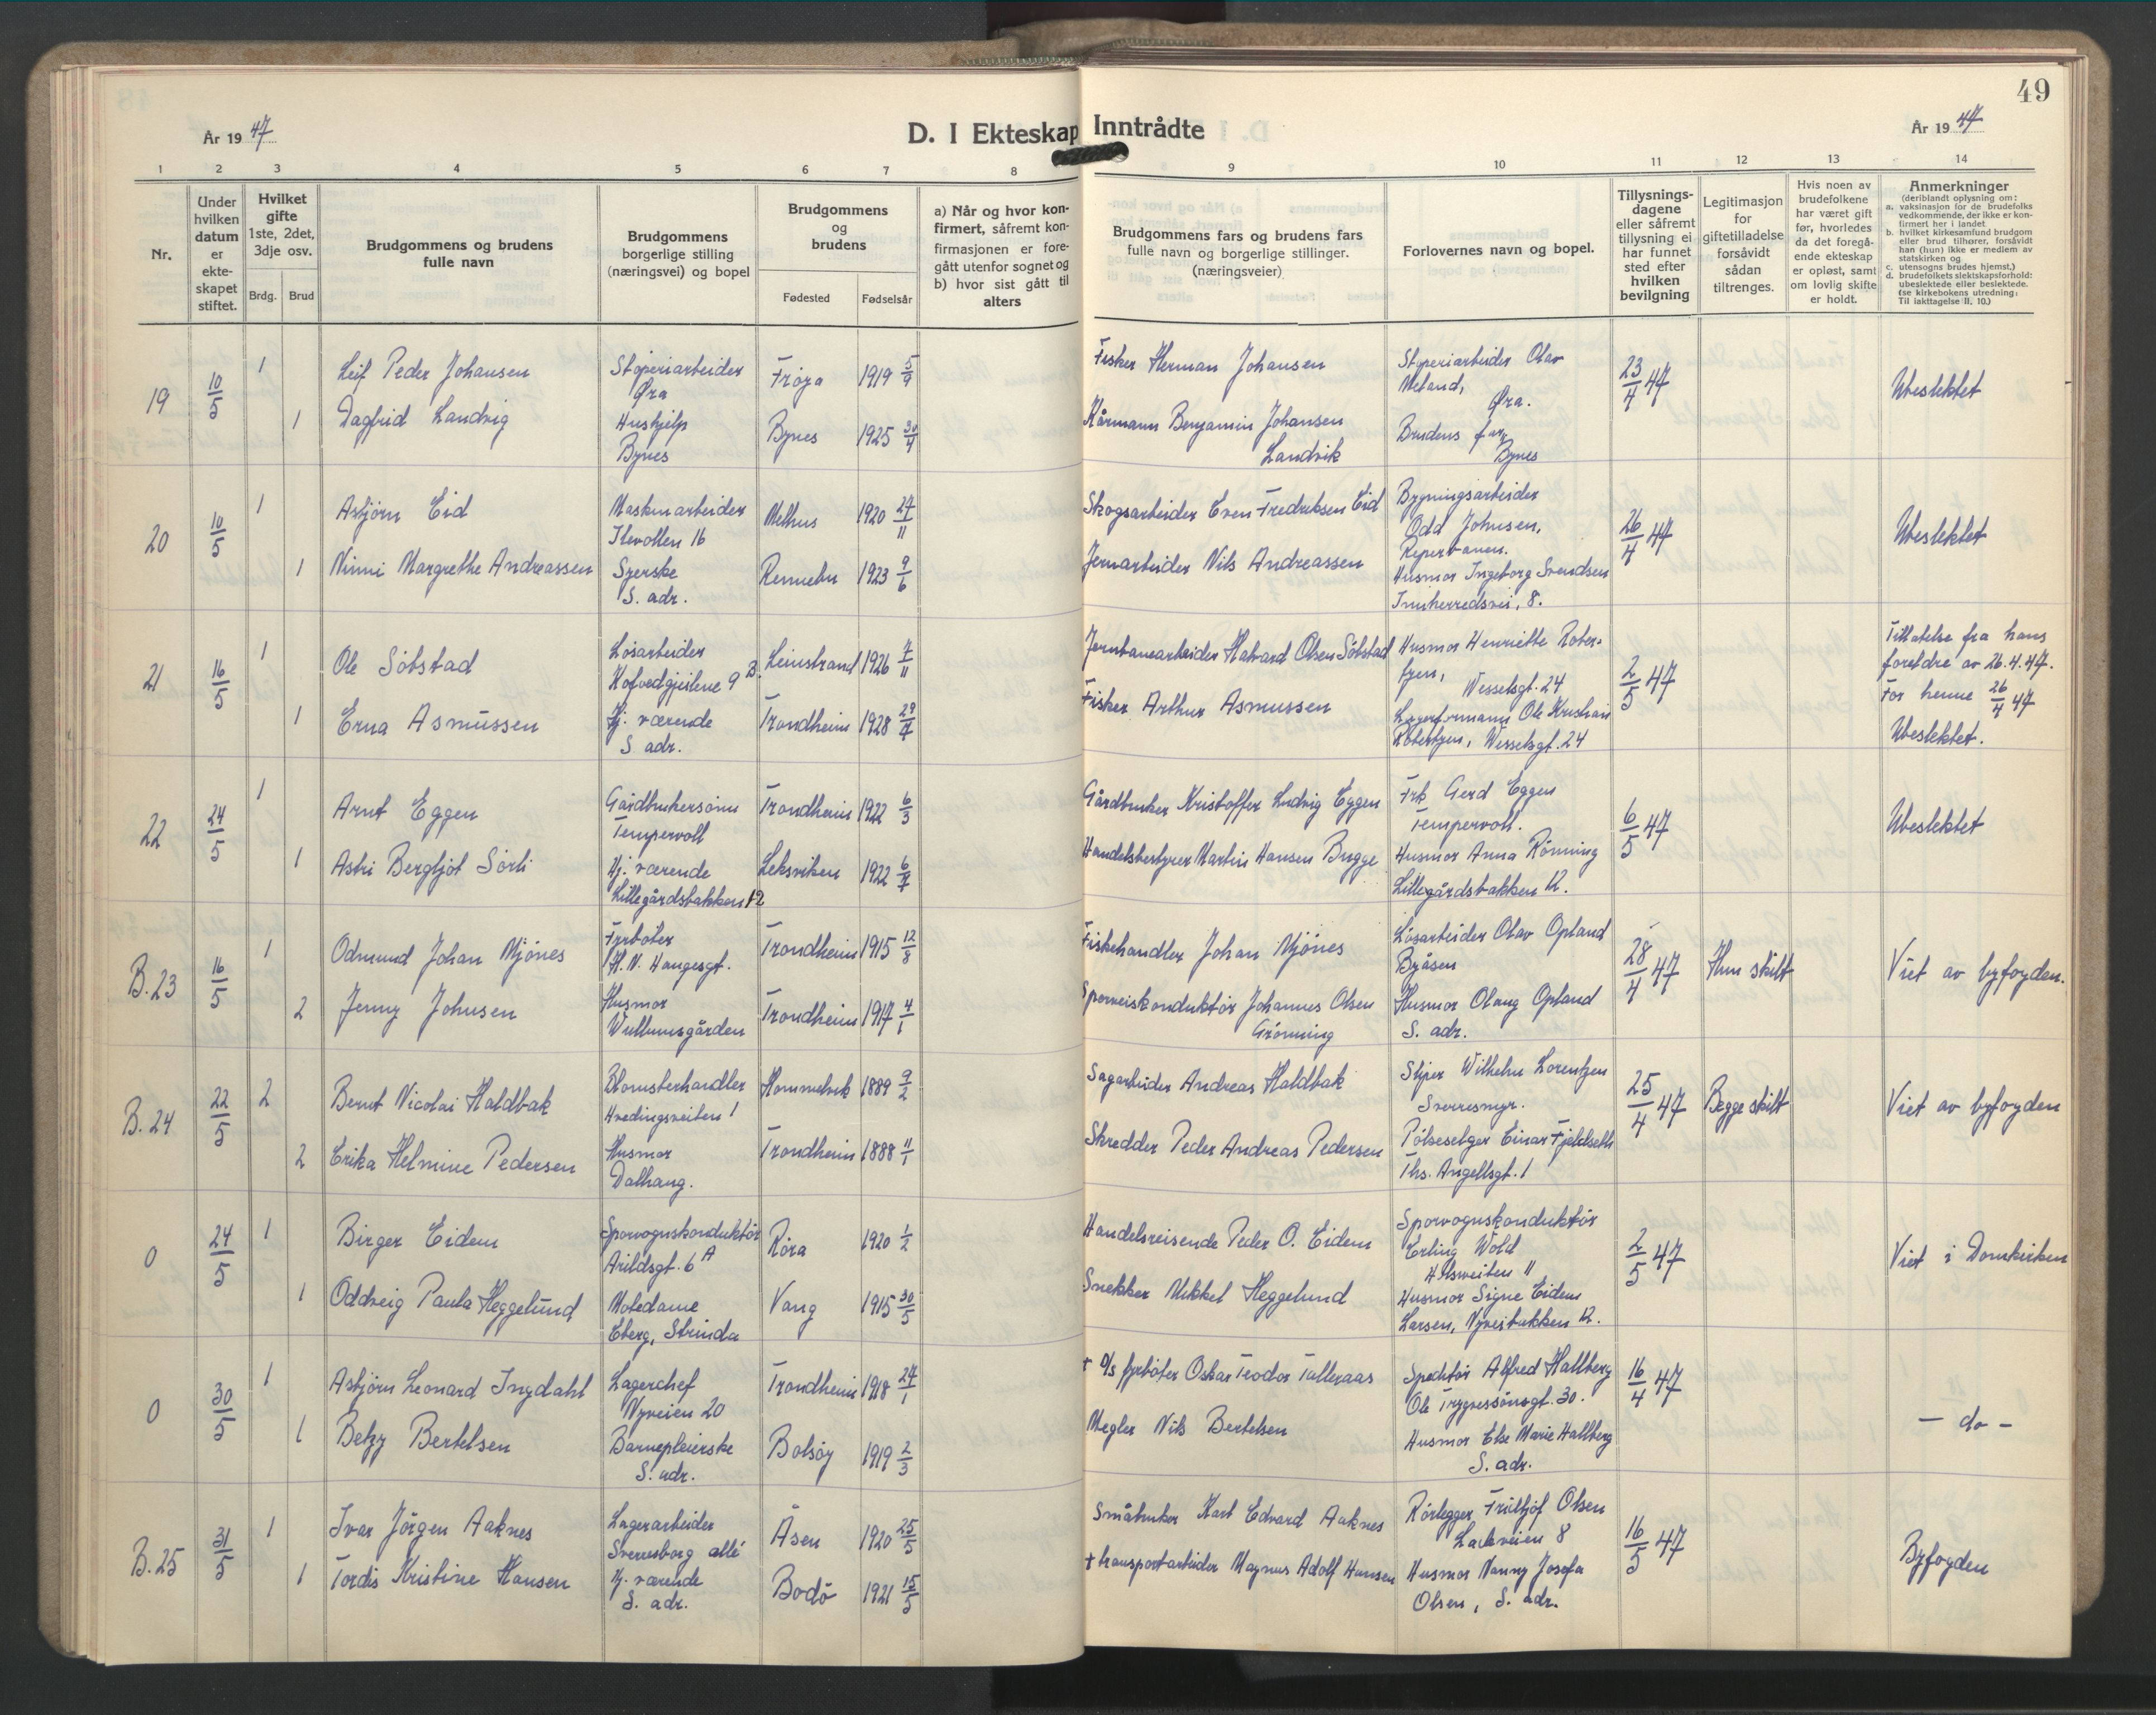 49
År 19 47
D. I Ekteskap Inntrådte
År 19 47
1 2 3 4 5 6 7 8 9 10 11 12 13 14
Nr.
Under hvilken datum er ekte-skapet stiftet.
Hvilket gifte 1ste, 2det, 3dje osv.
Brdg. Brud
Brudgommens og brudens fulle navn
Brudgommens borgerlige stilling (næringsvei) og bopel
Brudgommens og brudens
Fødested Fødselsår
a) Når og hvor kon-firmert, såfremt kon-firmasjonen er fore-gått utenfor sognet og b) hvor sist gått til alters
Brudgommens fars og brudens fars fulle navn og borgerlige stillinger. (næringsveier)
Forlovernes navn og bopel.
Tillysnings-dagene eller såfremt tillysning ei har funnet sted efter hvilken bevilgning
Legitimasjon for giftetilladelse forsåvidt sådan tiltrenges.
Hvis noen av brudefolkene har været gift før, hvorledes da det foregå-ende ekteskap er opløst, samt om lovlig skifte er holdt.
Anmerkninger
(deriblandt oplysning om:
a. vaksinasjon for de brudefolks vedkommende, der ikke er kon-firmert her i landet
b. hvilket kirkesamfund brudgom eller brud tilhører, forsåvidt han (hun) ikke er medlem av statskirken og
c. utensogns brudes hjemst.)
d. brudefolkets slektskapsforhold: ubeslektede eller beslektede.
(se kirkebokens utredning: Til iakttagelse II. 10.)
19 10/5 1 Leif Peder Johansen Støperiarbeider Øra Frøya 1919 5/9 Fisker Herman Johansen Støperiarbeider Olav Meland, Øra. 23/4 47 Ubeslektet
1 Dagfrid Landvig Hushjelp Bynes Bynes 1925 30/4 Kårmann Benjamin Johansen Landvik Brudens far, Bynes
20 10/5 1 Asbjörn Eid Maskinarbeider Ilevollen 16 Melhus 1920 27/11 Skogsarbeider Even Fredriksen Eid Bygningsarbeider Odd Johnsen, Reperbanen. 26/4 47 Ubeslektet
1 Ninni Margrethe Andreassen Syerske S. adr. Rennebu 1923 9/6 Jernarbeider Nils Andreassen Husmor Ingeborg Svendsen Innherredsvei, 8.
21 16/5 1 Ole Söbstad Løsarbeider Hofvedgjeilene 9 B. Leinstrand 1926 7/11 Jernbanearbeider Halvard Olsen Söbstad Husmor Henriette Robertzen, Wesselsgt. 24 2/5 47 Tillatelse fra hans foreldre av 26.4.47. For henne 26/4 47 Ubeslektet.
1 Erna Asmussen Hj. værende S adr. Trondheim 1928 29/7 Fisker Arthur Asmussen Lagerformann Ole Kristian Robertzen, Wesselsgt. 24
22 24/5 1 Arnt Eggen Gårdbrukersønn Tempervoll Trondheim 1922 6/3 Gårdbruker Kristoffer Ludvig Eggen Frk Gerd Eggen Tempervoll. 6/5 47 Ubeslektet
1 Astri Bergljot Sörli Hj. værende Lillegårdsbakken 12 Leksviken 1922 6/7 Handelsbestyrer Martin Hansen Bugge Husmor Anna Rönning Lillegårdsbakken 12.
B.23 16/5 1 Odmund Johan Mjönes Fyrböter H. N. Haugesgt. Trondheim 1915 12/8 Fiskehandler Johan Mjönes Løsarbeider Olav Opland Byåsen 28/4 47 Hun skilt Viet av byfogden.
2 Jenny Johnsen Husmor Wullumsgården Trondheim 1917 4/1 Sporveiskonduktör Johannes Olsen Grönning Husmor Olaug Opland S. adr.
B.24 22/5 2 Bernt Nicolai Haldbak Blomsterhandler Hvedingsveiten 1 Hommelvik 1889 9/2 Sagarbeider Andreas Haldbak Sliper Wilhelm Lorentzen Sverresmyr. 25/4 47 Begge skilt Viet av byfogden
2 Erika Helmine Pedersen Husmor Dalhaug. Trondheim 1888 11/1 Skredder Peder Andreas Pedersen Pölseselger Einar Fjeldseth Ths. Angellsgt. 1
0 24/5 1 Birger Eidem Sporvognskonduktör Arildsgt. 6 A Röra 1920 1/2 Handelsreisende Peder O. Eidem Sporvognskonduktör Erling Wold 11 2/5 47 Viet i Domkirken
1 Oddveig Paula Heggelund Motedame Eberg, Strinda Vang 1915 30/5 Snekker Mikkel Heggelund Husmor Signe Eidem Larsen, Nyveibakken 12.
0 30/5 1 Asbjörn Leonard Ingdahl Lagerchef Nyveien 20 Trondheim 1918 27/1 + D/s fyrböter Oskar Teodor Talleraas Spedktör Alfred Hallberg Ole Trygvessönsgt. 30. 16/4 47 — do —
1 Betzy Bertelsen Barnepleierske S. adr. Bolsöy 1919 2/3 Megler Nils Bertelsen Husmor Else Marie Hallberg S. adr.
B.25 31/5 1 Ivar Jörgen Aaknes Lagerarbeider Sverresborg allé Åsen 1920 25/5 Småbruker Karl Edvard Aaknes Rörlegger Fridtjof Olsen 8 16/5 47 Byfogden
1 Tordis Kristine Hansen Hj. værende S. adr. Bodö 1921 15/5 + transportarbeider Magnus Adolf Hansen Husmor Nanny Josefa Olsen, S. adr.